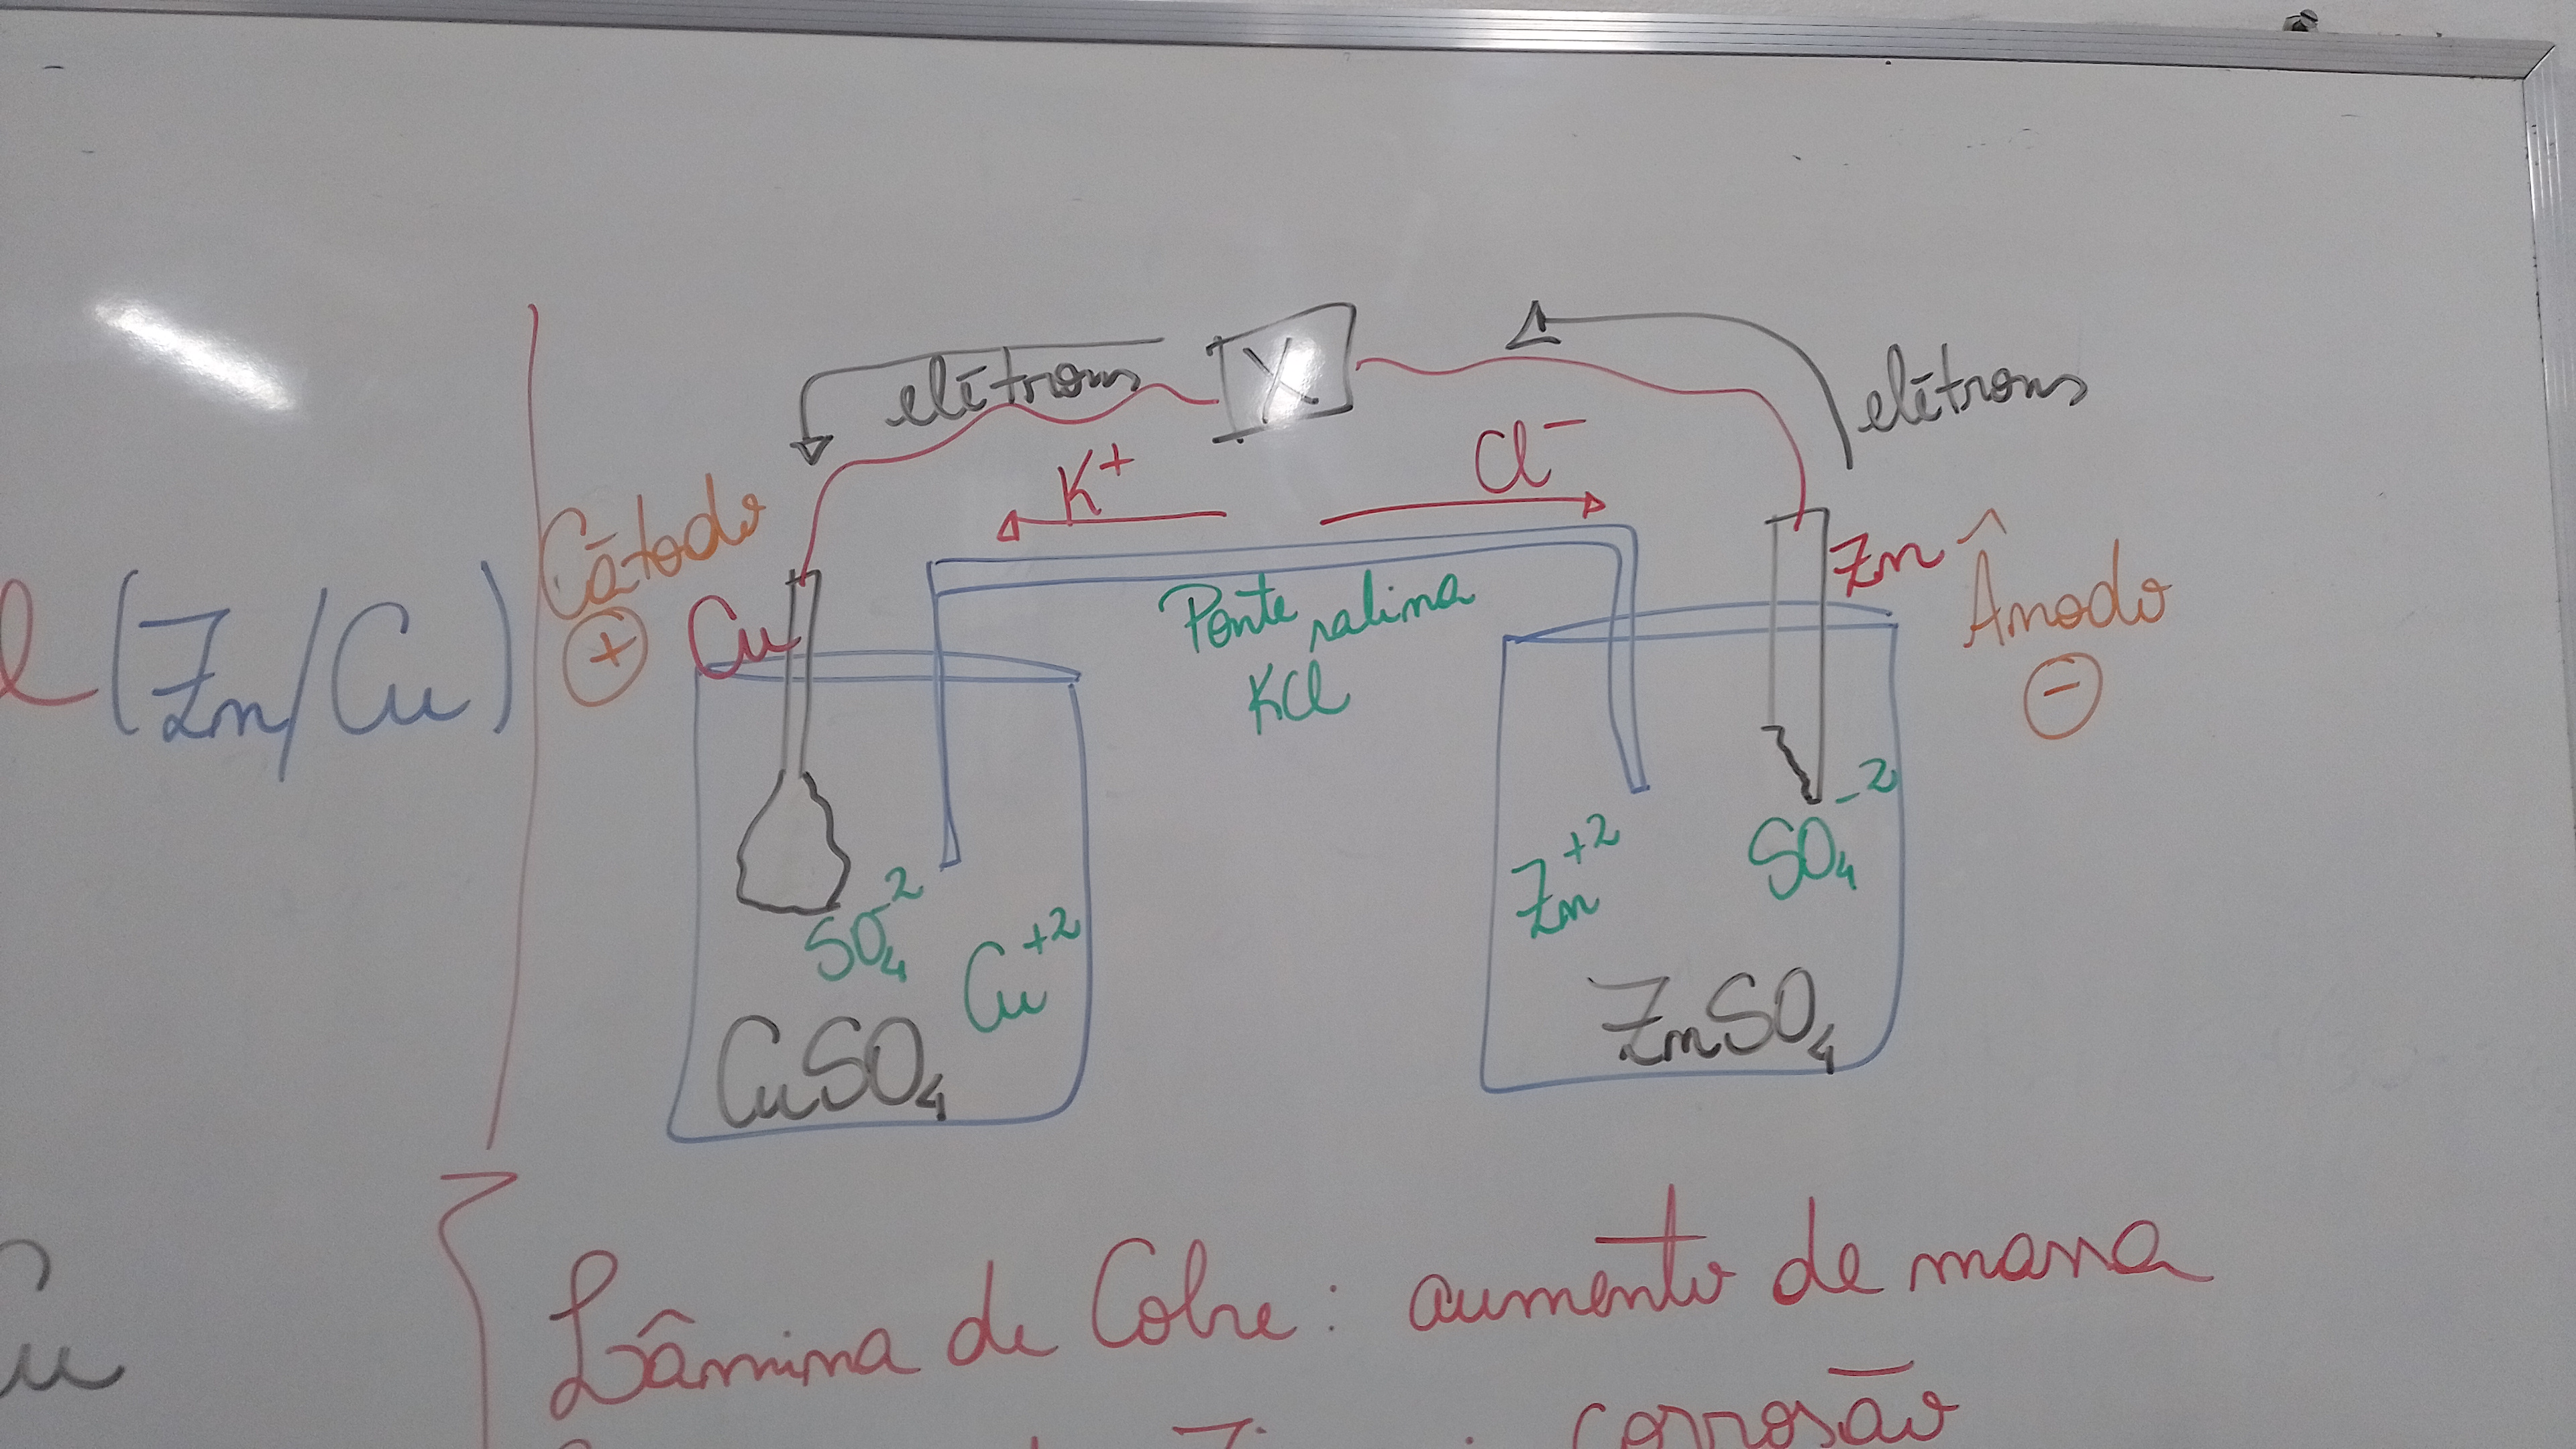 (Zn/Cu)
elétrons
X
elétrons
K+
Cl-
Cátodo
+
Cu
Zn
Ânodo
-
Ponte salina
KCl
SO4-2
Cu+2
CuSO4
Zn+2
SO4-2
ZnSO4
Lâmina de Cobre: aumento de massa
corrosão